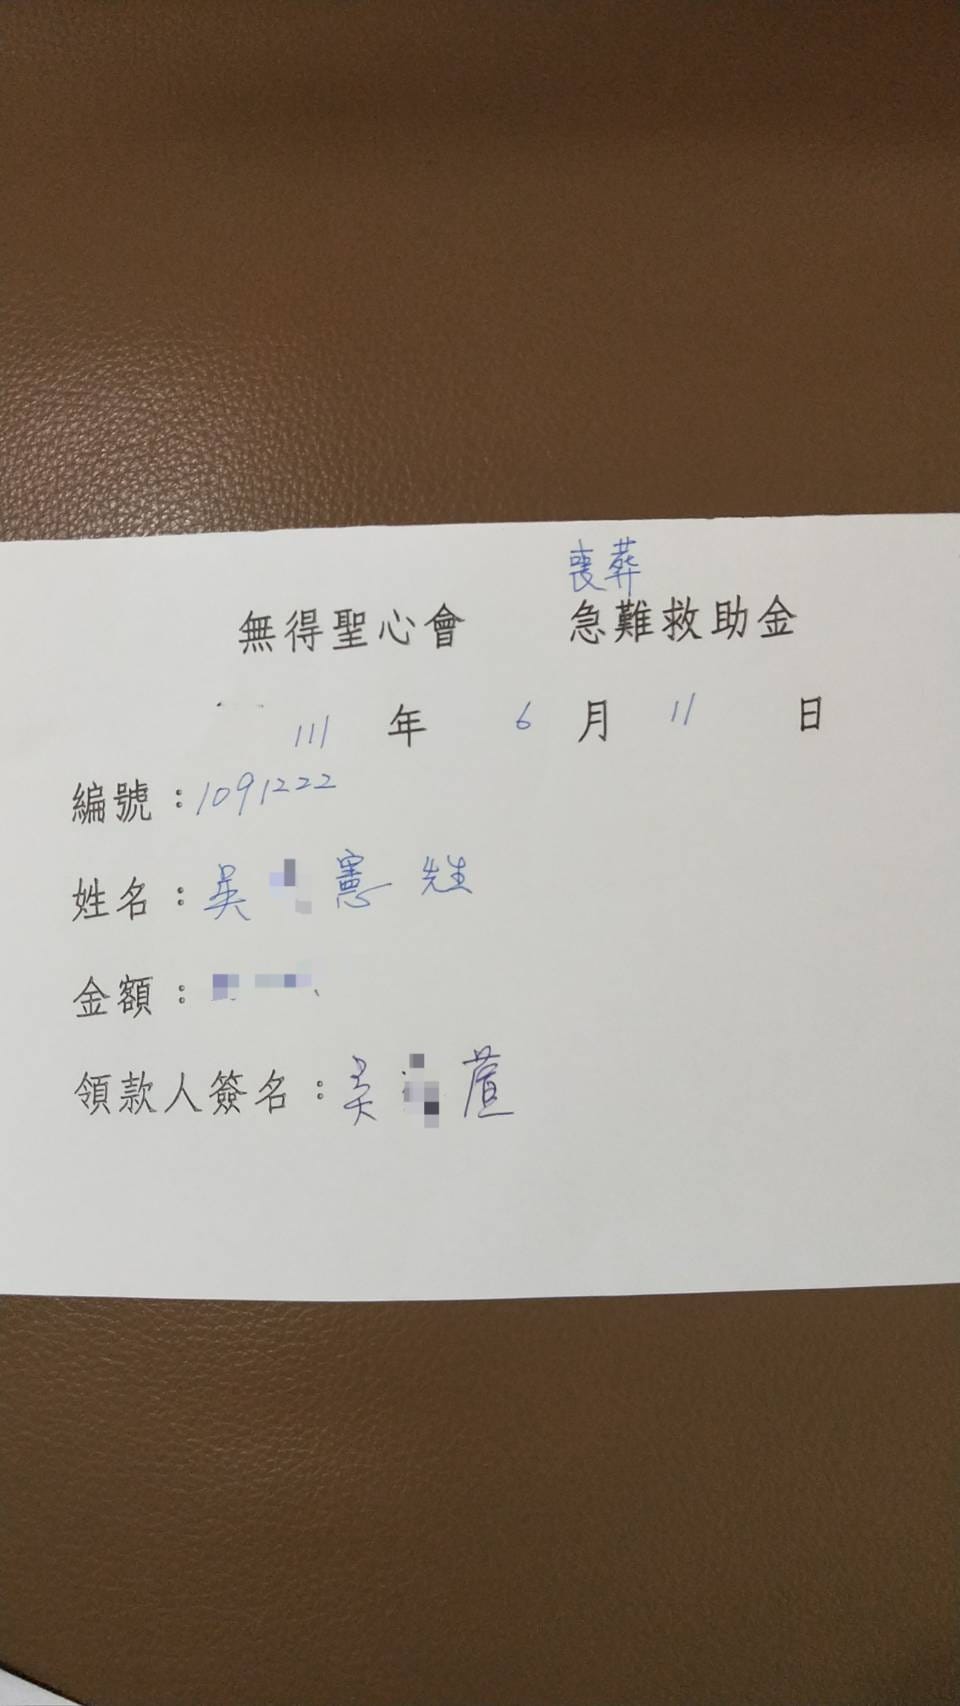 喪葬
無得聖心會 急難救助金
111 年 6 月 11 日
編號：1091222
姓名：吳 憲 先生
金額：
領款人簽名：吳 萱